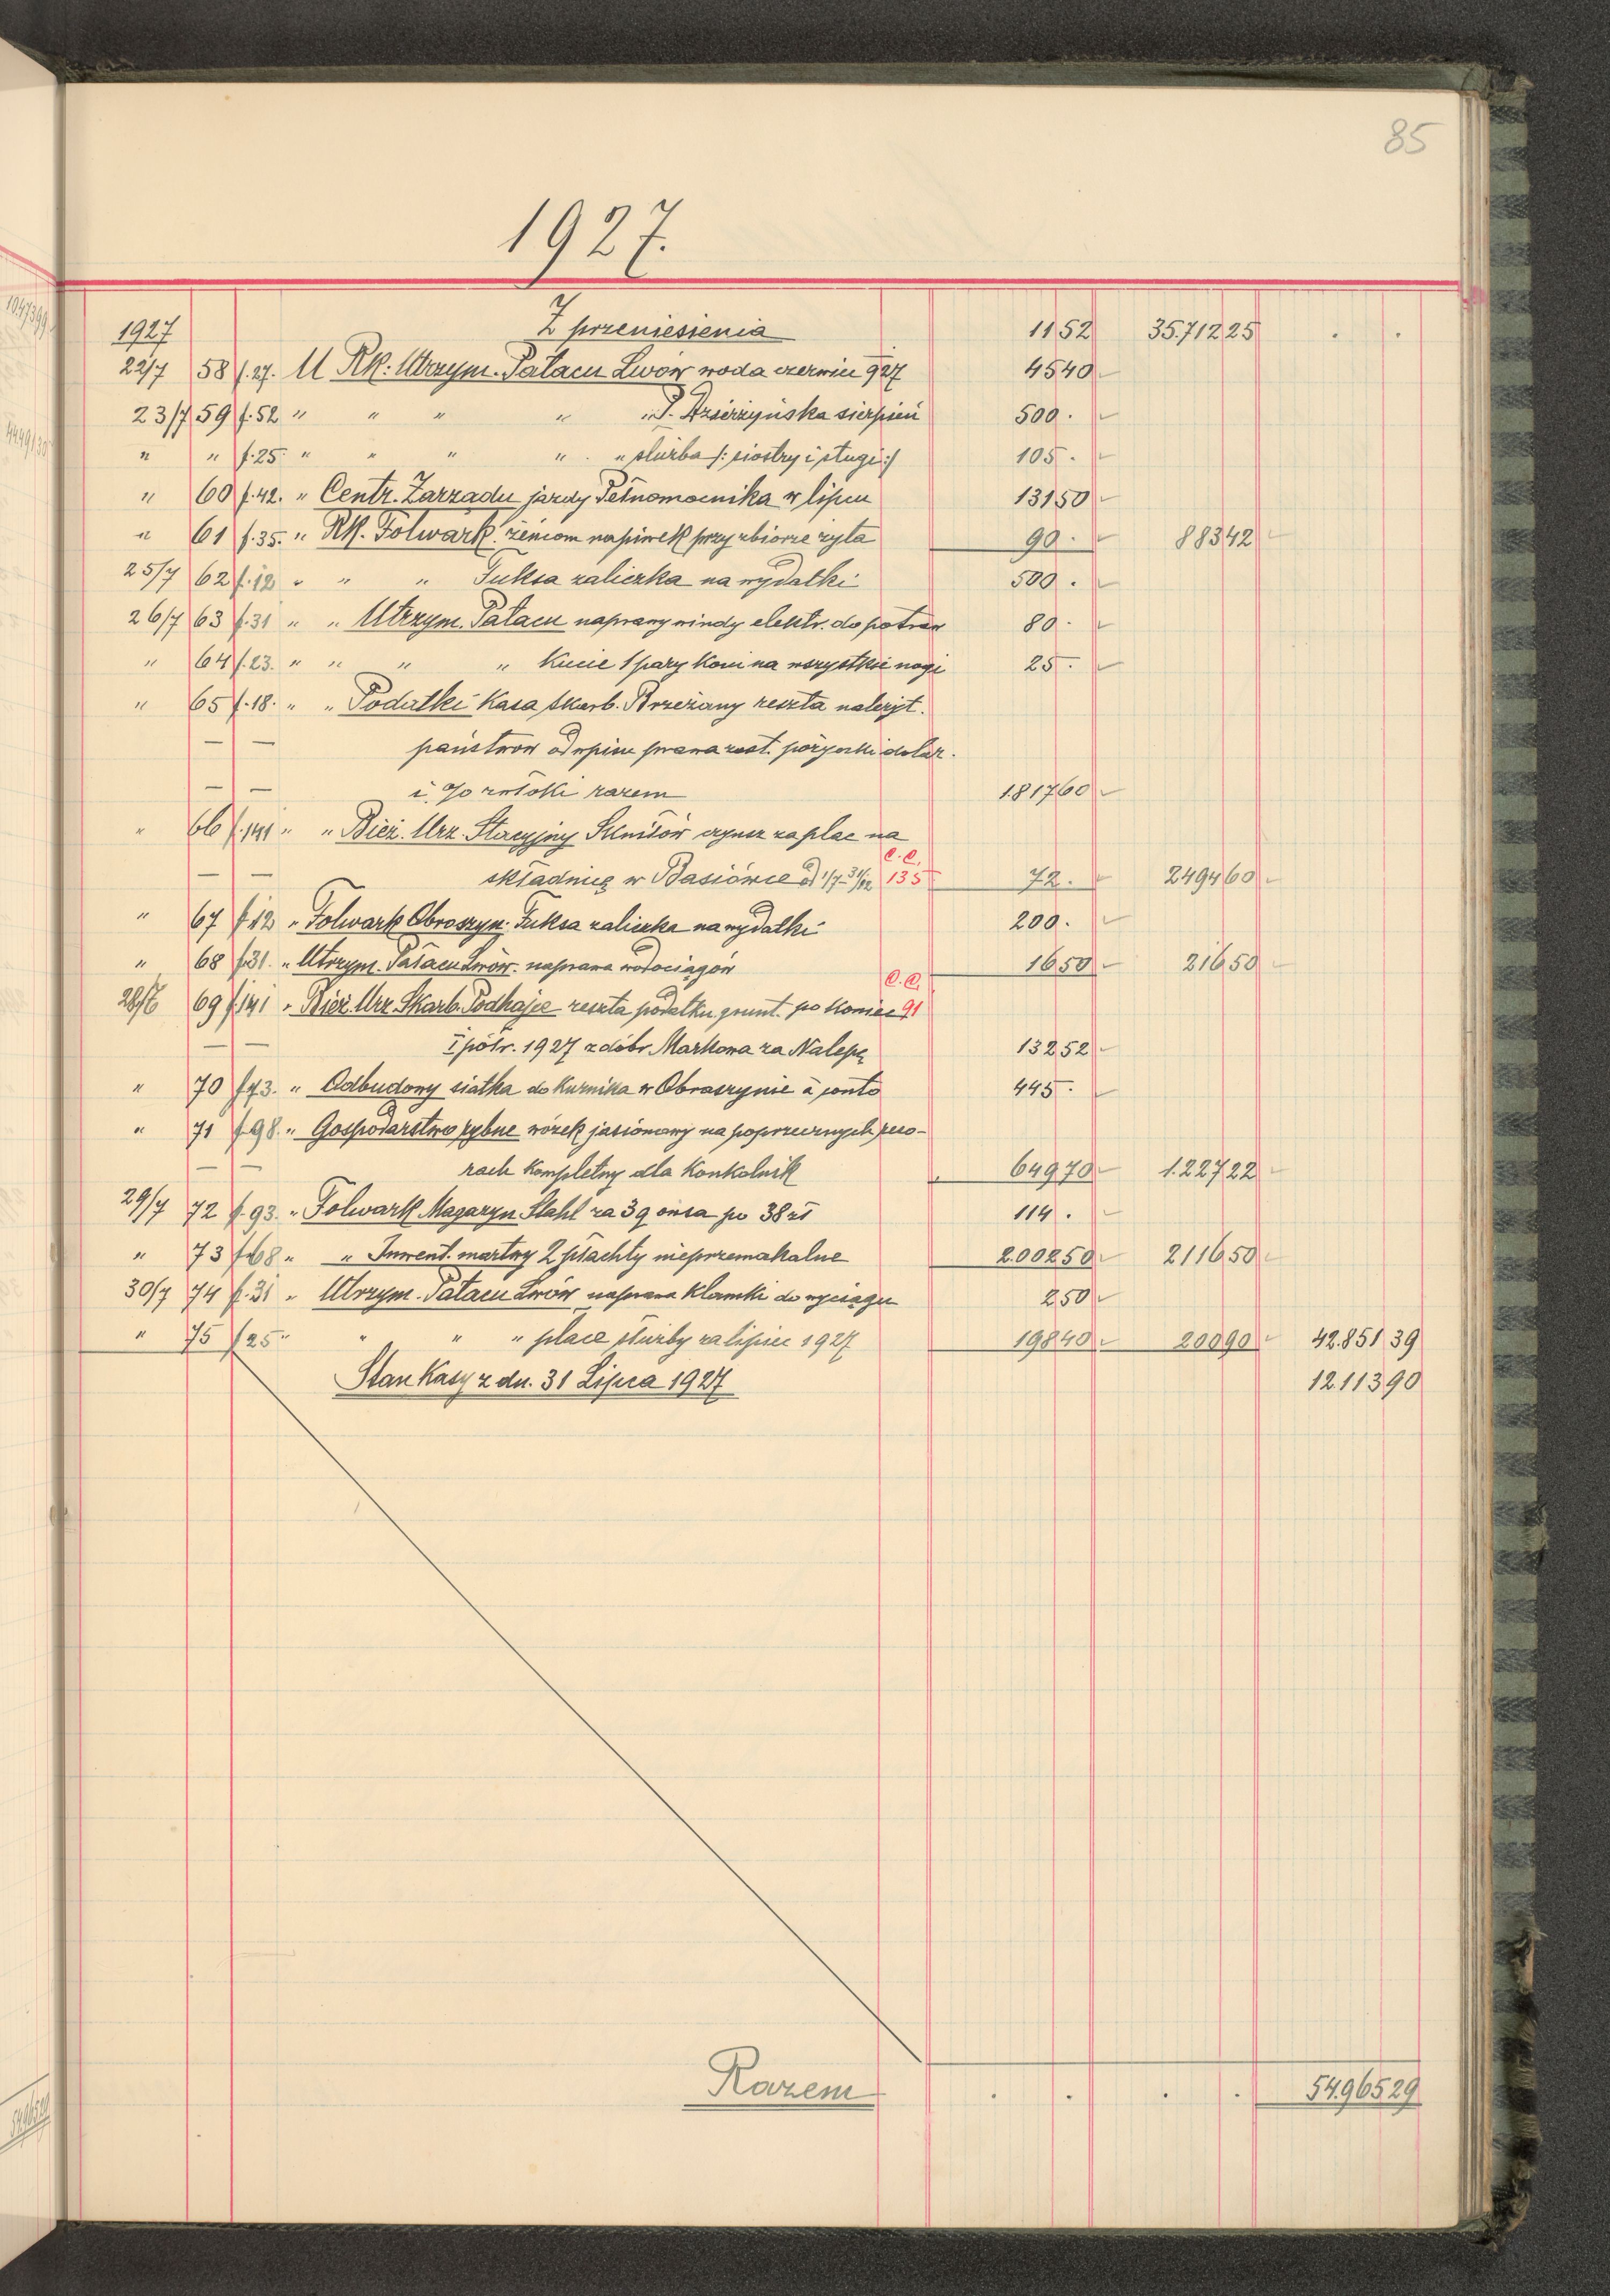 85
1927.
1927 Z przeniesienia 11 52 35.712 25 . .
22/7 58 f.27. U Rk: Utrzym. Pałacu Lwów woda czerwiec 927 45 40
23/7 59 f.52 " " " " " P. Dzierżyńska sierpień 500 .
" " f.25. " " " " . " służba /: siostry i sługi :/ 105 .
" 60 f.42. " Centr. Zarządu jazdy Pełnomocnika w lipcu 131 50
" 61 f.35. " Rk. Folwark. żeńcom napiwek przy zbiorze żyta 90 . 883 42
25/7 62 f.12 " " " Fuksa zaliczka na wydatki 500 .
26/7 63 f.31 " " Utrzym. Pałacu naprawy windy elektr. do potraw 80 .
" 64 f.23. " " " " Kucie 1 pary koni na wszystkie nogi 25 .
" 65 f.18. " " Podatki Kasa skarb. Brzeżany reszta należyt.
— — państwow od wpisu prawa zast. pożyczki dolar.
— — i % zwłoki razem 1.817 60
" 66 f.141 " " Bież. Urz. Stacyjny Skniłów czynsz za plac na
C.C.
— — składnicę w Basiówce od 1/7-31/12 135 72 . 2494 60
" 67 f.12 " Folwark Obroszyn. Fuksa zaliczka na wydatki 200 .
" 68 f.31. " Utrzym. Pałacu Lwów. naprawa wodociągów 16 50 216 50
C.C.
28/7 69 f.141 " Bież. Urz. Skarb. Podhajce reszta podatku grunt. po koniec 91
— — I półr. 1927 z dóbr Markowa za Nalepę 132 52
" 70 f.43. " Odbudowy siatka do kurnika w Obroszynie à conto 445 .
" 71 f.98. " Gospodarstwo rybne wózek jasionowy na poprzecznych peso-
— — rach kompletny dla Konkolnik 649 70 1.227 22
29/7 72 f.93. " Folwark Magazyn Stahl za 3 q owsa po 38 zł 114 .
" 73 f.68 " " Inwent. martwy 2 płachty nieprzemakalne 2.002 50 2116 50
30/7 74 f.31 " Utrzym. Pałacu Lwów naprawa klamki do wyciągu 2 50
" 75 f.25 " " " " płace służby za lipiec 1927 198 40 200 90 42.851 39
Stan Kasy z dn. 31 Lipca 1927 12.113 90
Razem . . . . 54.965 29